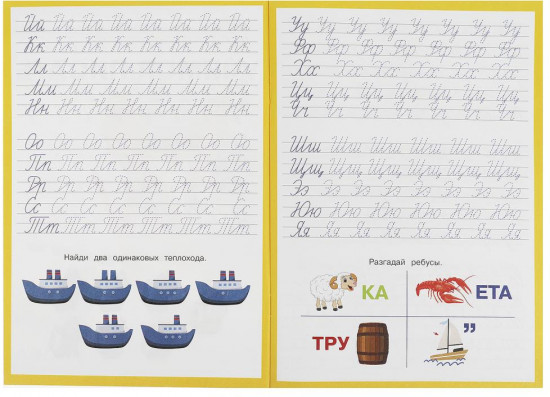 Йй Йй Йй Йй Йй Йй Йй Йй
Кк Кк Кк Кк Кк Кк Кк Кк
Лл Лл Лл Лл Лл Лл Лл Лл
Мм Мм Мм Мм Мм Мм Мм
Нн Нн Нн Нн Нн Нн Нн
Оо Оо Оо Оо Оо Оо Оо Оо
Пп Пп Пп Пп Пп Пп Пп Пп
Рр Рр Рр Рр Рр Рр Рр Рр
Сс Сс Сс Сс Сс Сс Сс Сс
Тт Тт Тт Тт Тт Тт
Найди два одинаковых теплохода.
Уу Уу Уу Уу Уу Уу Уу Уу
Фф Фф Фф Фф Фф Фф Фф
Хх Хх Хх Хх Хх Хх
Цц Цц Цц Цц Цц Цц Цц
Чч Чч Чч Чч Чч Чч Чч Чч
Шш Шш Шш Шш Шш Шш
Щщ Щщ Щщ Щщ Щщ Щщ
Ээ Ээ Ээ Ээ Ээ Ээ Ээ Ээ
Юю Юю Юю Юю Юю Юю
Яя Яя Яя Яя Яя Яя Яя Яя
Разгадай ребусы.
КА ЕТА
ТРУ ”